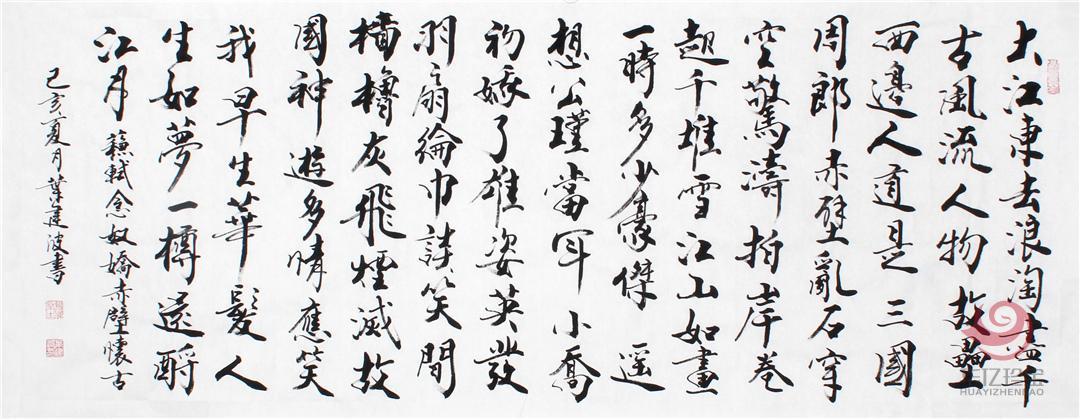 大江東去浪淘盡千
古風流人物故壘
西邊人道是三國
周郎赤壁亂石穿
空驚濤拍岸卷
起千堆雪江山如畫
一時多少豪傑遥
想公瑾當年小喬
初嫁了雄姿英發
羽扇綸巾談笑間
檣櫓灰飛煙滅故
國神遊多情應笑
我早生華髮人
生如夢一樽還酹
江月 蘇軾念奴嬌赤壁懷古
己亥夏月葉建波書
HUAYIZHENBAO